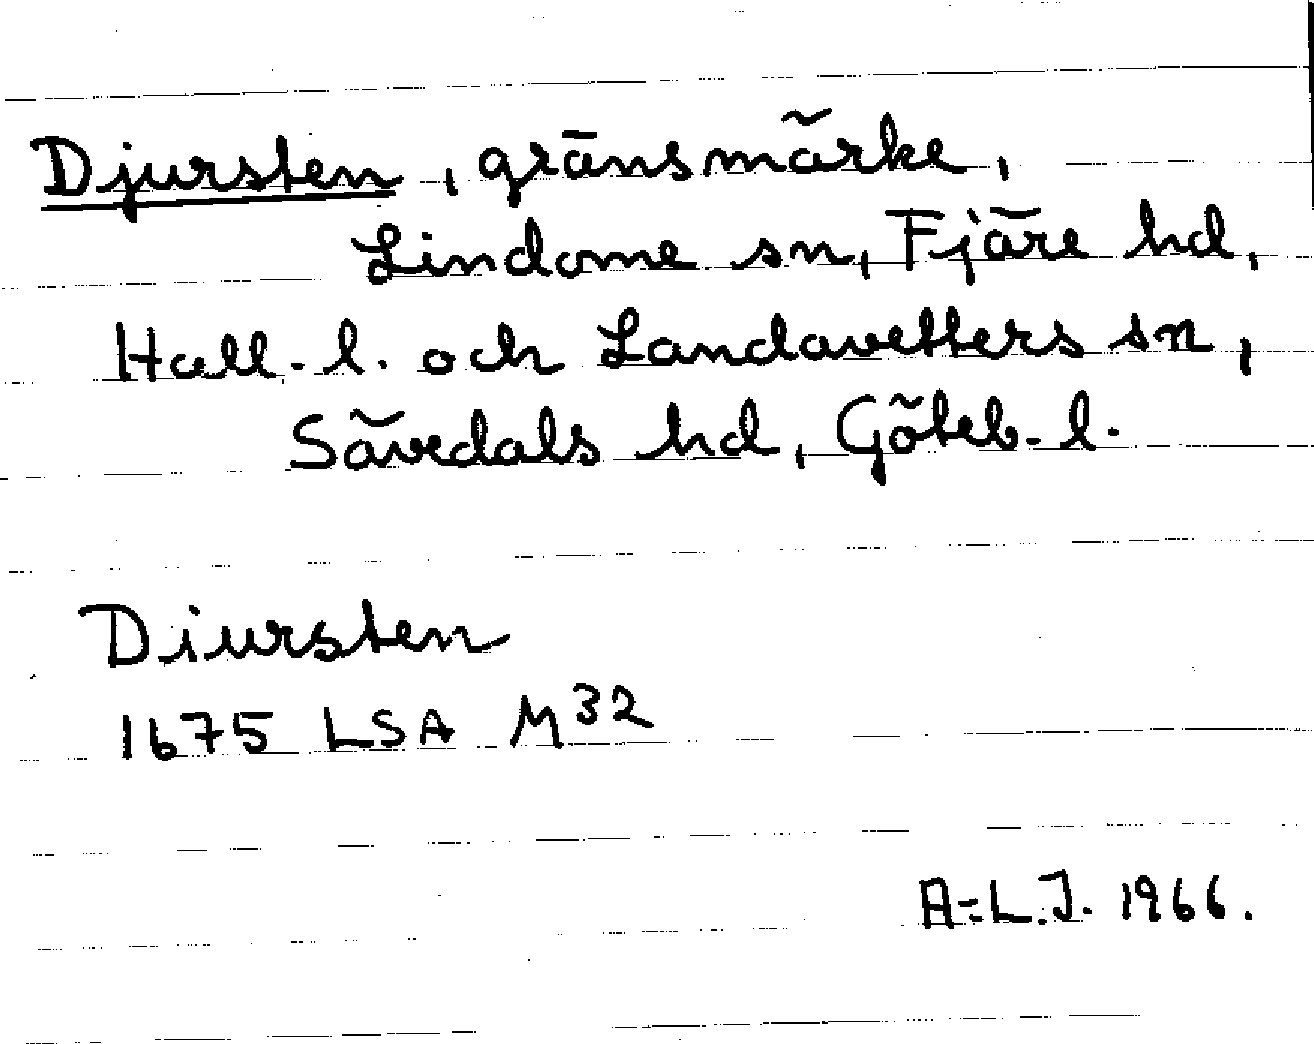 Djursten, gränsmärke,
Lindome sn, Fjäre hd,
Hall. l. och Landavetters sn,
Sävedals hd, Göteb. l.
Diursten
1675 LSA M32
A-L.J. 1966.